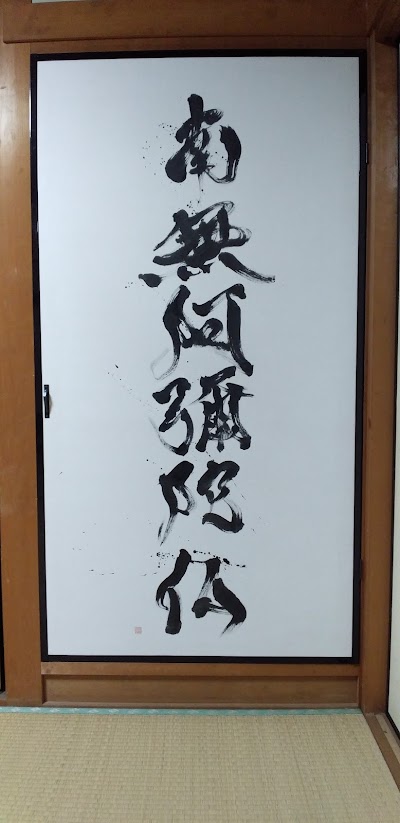 南無阿彌陀仏